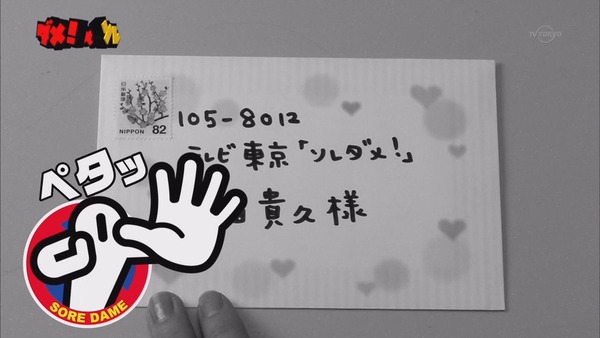 ダメ!
ソレ
TV TOKYO
日本郵便
NIPPON 82
105-8012
テレビ東京「ソレダメ!」
貴久様
ペタッ
SORE DAME